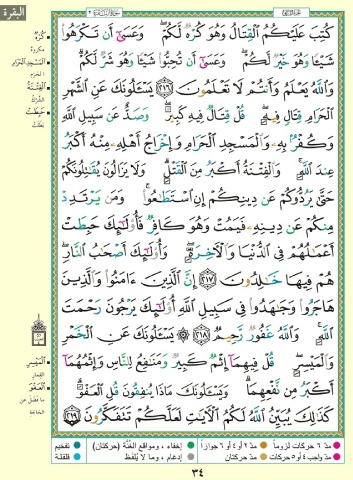 البقرة
كُتِبَ عَلَيْكُمُ الْقِتَالُ وَهُوَ كُرْهٌ لَّكُمْ وَعَسَىٰ أَن تَكْرَهُوا
شَيْئًا وَهُوَ خَيْرٌ لَّكُمْ وَعَسَىٰ أَن تُحِبُّوا شَيْئًا وَهُوَ شَرٌّ لَّكُمْ
وَاللَّهُ يَعْلَمُ وَأَنتُمْ لَا تَعْلَمُونَ ٢١٦ يَسْـَٔلُونَكَ عَنِ الشَّهْرِ
الْحَرَامِ قِتَالٍ فِيهِ قُلْ قِتَالٌ فِيهِ كَبِيرٌ وَصَدٌّ عَن سَبِيلِ اللَّهِ
وَكُفْرٌ بِهِ وَالْمَسْجِدِ الْحَرَامِ وَإِخْرَاجُ أَهْلِهِ مِنْهُ أَكْبَرُ
عِندَ اللَّهِ وَالْفِتْنَةُ أَكْبَرُ مِنَ الْقَتْلِ وَلَا يَزَالُونَ يُقَاتِلُونَكُمْ
حَتَّىٰ يَرُدُّوكُمْ عَن دِينِكُمْ إِنِ اسْتَطَاعُوا وَمَن يَرْتَدِدْ
مِنكُمْ عَن دِينِهِ فَيَمُتْ وَهُوَ كَافِرٌ فَأُولَـٰئِكَ حَبِطَتْ
أَعْمَالُهُمْ فِي الدُّنْيَا وَالْآخِرَةِ وَأُولَـٰئِكَ أَصْحَابُ النَّارِ
هُمْ فِيهَا خَالِدُونَ ٢١٧ إِنَّ الَّذِينَ آمَنُوا وَالَّذِينَ
هَاجَرُوا وَجَاهَدُوا فِي سَبِيلِ اللَّهِ أُولَـٰئِكَ يَرْجُونَ رَحْمَتَ
اللَّهِ وَاللَّهُ غَفُورٌ رَّحِيمٌ ٢١٨ يَسْـَٔلُونَكَ عَنِ الْخَمْرِ
وَالْمَيْسِرِ قُلْ فِيهِمَا إِثْمٌ كَبِيرٌ وَمَنَافِعُ لِلنَّاسِ وَإِثْمُهُمَا
أَكْبَرُ مِن نَّفْعِهِمَا وَيَسْـَٔلُونَكَ مَاذَا يُنفِقُونَ قُلِ الْعَفْوَ
كَذَٰلِكَ يُبَيِّنُ اللَّهُ لَكُمُ الْآيَاتِ لَعَلَّكُمْ تَتَفَكَّرُونَ ٢١٩
كُرْهٌ
مكروه
الْمَسْجِدِ الْحَرَامِ
الحرم
الْفِتْنَةُ
الشرك
حَبِطَتْ
بطلت
الْمَيْسِرِ
القمار
الْعَفْوَ
ما فضل عن
الحاجة
مدّ ٦ حركات لزوماً
مدّ ٢ أو ٤ أو ٦ جوازاً
إخفاء، ومواقع الغُنَّة (حركتان)
تفخيم
مدّ واجب ٤ أو ٥ حركات
مدّ حركتان
إدغام، وما لا يُلفظ
قلقلة
٣٤